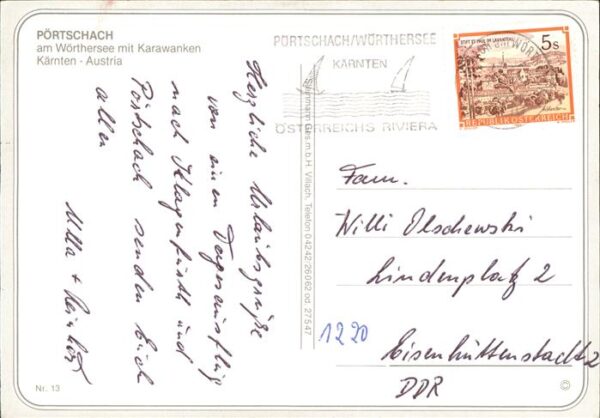 PÖRTSCHACH
am Wörthersee mit Karawanken
Kärnten - Austria
PÖRTSCHACH/WÖRTHERSEE
KÄRNTEN
ÖSTERREICHS RIVIERA
STIFT ST. PAUL IM LAVANTTAL
5s
REPUBLIK ÖSTERREICH
Herzliche Urlaubsgrüße
von einen Tagesausflug
nach Klagenfurth und
Pörtschach senden Euch
allen
Ulla + Reinhold
Ges.m.b.H. Villach, Telefon 04242/26062 od. 27547
Fam.
Willi Olschewski
Lindenplatz 2
1220
Eisenhüttenstadt 2
DDR
Nr. 13
©